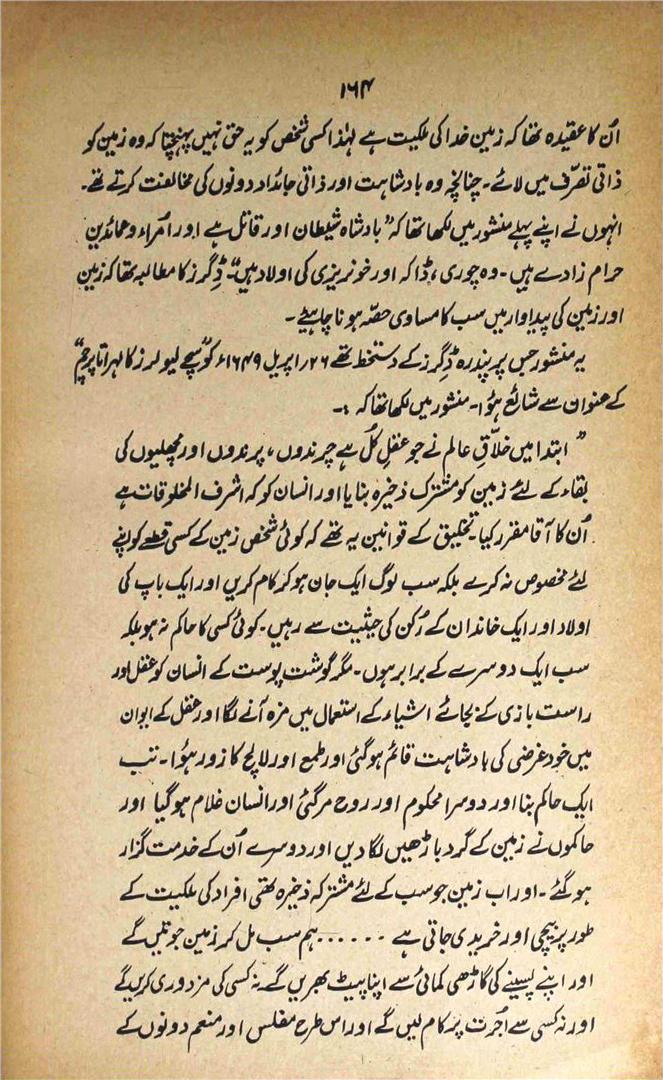 ۱۶۴
اُن کا عقیدہ تھا کہ زمین خدا کی ملکیت ہے لہٰذا کسی شخص کو یہ حق نہیں پہنچتا کہ وہ زمین کو
ذاتی تصرّف میں لائے۔ چنانچہ وہ بادشاہت اور ذاتی جائداد دونوں کی مخالفت کرتے تھے۔
انہوں نے اپنے پہلے منشور میں لکھا تھا کہ ”بادشاہ شیطان اور قاتل ہے اور اُمراء و عمائدین
حرام زادے ہیں۔ وہ چوری، ڈاکہ اور خونریزی کی اولاد ہیں“۔ ڈِگرز کا مطالبہ تھا کہ زمین
اور زمین کی پیداوار میں سب کا مساوی حصّہ ہونا چاہیئے۔
یہ منشور جس پر پندرہ ڈِگرز کے دستخط تھے ۲۶ اپریل ۱۶۴۹ء کو ”سچے لیولرز کا لہراتا پرچم“
کے عنوان سے شائع ہؤا۔ منشور میں لکھا تھا کہ :۔
” ابتدا میں خلاّقِ عالم نے جو عقلِ کُل ہے چرندوں، پرندوں اور مچھلیوں کی
بقاء کے لئے زمین کو مشترک ذخیرہ بنایا اور انسان کو کہ اشرف المخلوقات ہے
اُن کا آقا مقرر کیا۔ تخلیق کے قوانین یہ تھے کہ کوئی شخص زمین کے کسی قطعے کو اپنے
لئے مخصوص نہ کرے بلکہ سب لوگ ایک جان ہو کر کام کریں اور ایک باپ کی
اولاد اور ایک خاندان کے رُکن کی حیثیت سے رہیں۔ کوئی کسی کا حاکم نہ ہو بلکہ
سب ایک دوسرے کے برابر ہوں۔ مگر گوشت پوست کے انسان کو عقل اور
راست بازی کے بجائے اشیاء کے استعمال میں مزہ آنے لگا اور عقل کے ایوان
میں خود غرضی کی بادشاہت قائم ہو گئی اور طمع اور لالچ کا زور ہؤا۔ تب
ایک حاکم بنا اور دوسرا محکوم اور روح مر گئی اور انسان غلام ہو گیا اور
حاکموں نے زمین کے گرد باڑھیں لگا دیں اور دوسرے اُن کے خدمت گزار
ہو گئے۔ اور اب زمین جو سب کے لئے مشترکہ ذخیرہ تھی افراد کی ملکیت کے
طور پر بیچی اور خریدی جاتی ہے ...... ہم سب مل کر زمین جوتیں گے
اور اپنے پسینے کی گاڑھی کمائی سے اپنا پیٹ بھریں گے۔ نہ کسی کی مزدوری کریں گے
اور نہ کسی سے اُجرت پر کام لیں گے اور اس طرح مفلس اور منعم دونوں کے